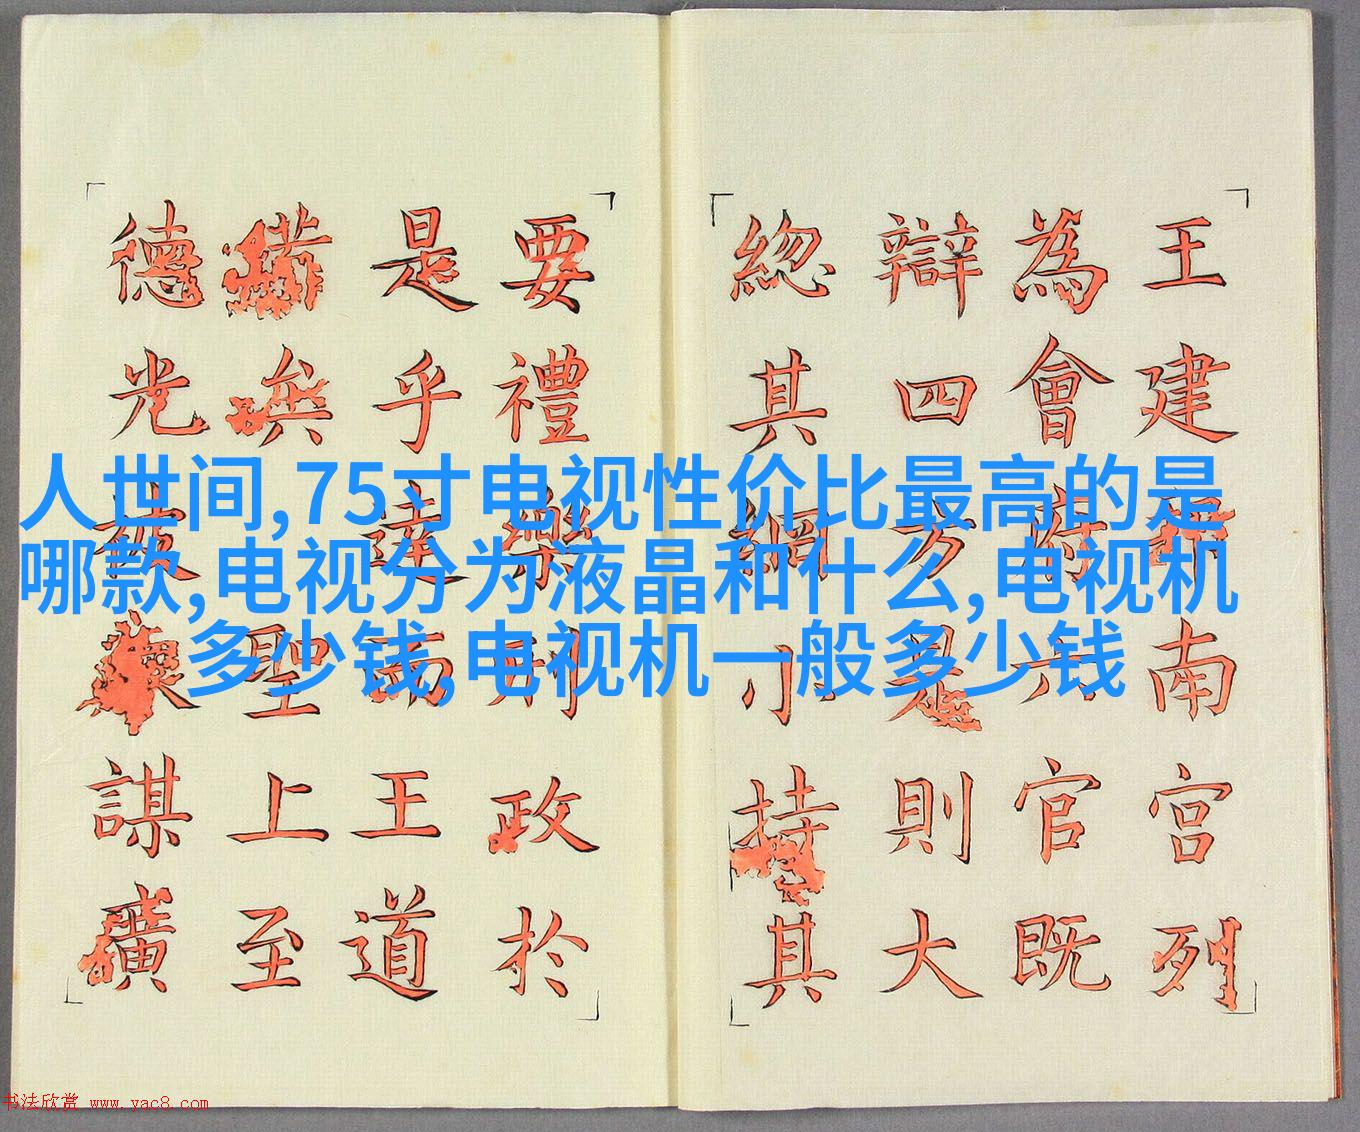 人世间,75寸电视性价比最高的是
哪款,电视分为液晶和什么,电视机
多少钱,电视机一般多少钱
王建南宮列
為會府六官既
辯四方是則大
緫其綱小持其
要禮樂刑政於
是乎達而王道
備矣聖上至
德光被謀廣
书法欣赏 www.yac8.com